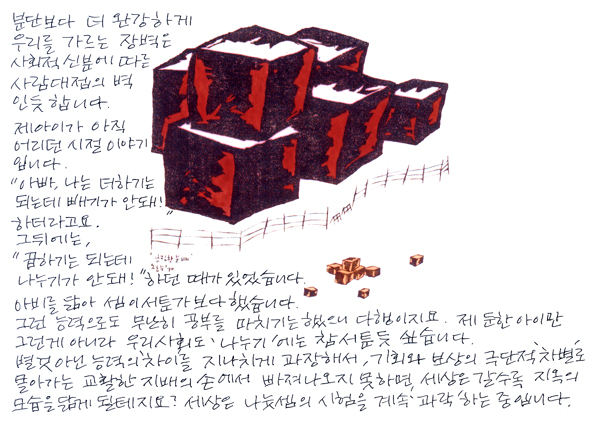 분단보다 더 완강하게
우리를 가르는 장벽은
사회적 신분에 따른
사람대접의 벽
인듯 합니다.
제아이가 아직
어리던 시절 이야기
입니다.
"아빠, 나는 더하기는
되는데 빼기가 안돼!"
하더라고요.
그뒤에는,
"곱하기는 되는데
나누기가 안돼!" 하던 때가 있었습니다.
아비를 닮아 셈이 서툰가보다 했습니다.
그런 능력으로도 무난히 공부를 마치기는 했으니 다행이지요. 제 둔한 아이만
그런게 아니라 우리사회도 '나누기'에는 참 서툰듯 싶습니다.
별것 아닌 능력의 차이를 지나치게 과장해서, 기회와 보상의 극단적 '차별'로
몰아가는 교활한 지배의 손에서 빠져나오지 못하면, 세상은 갈수록 지옥의
모습을 닮게 될테지요? 세상은 나눗셈의 시험을 계속 '과락'하는 중입니다.